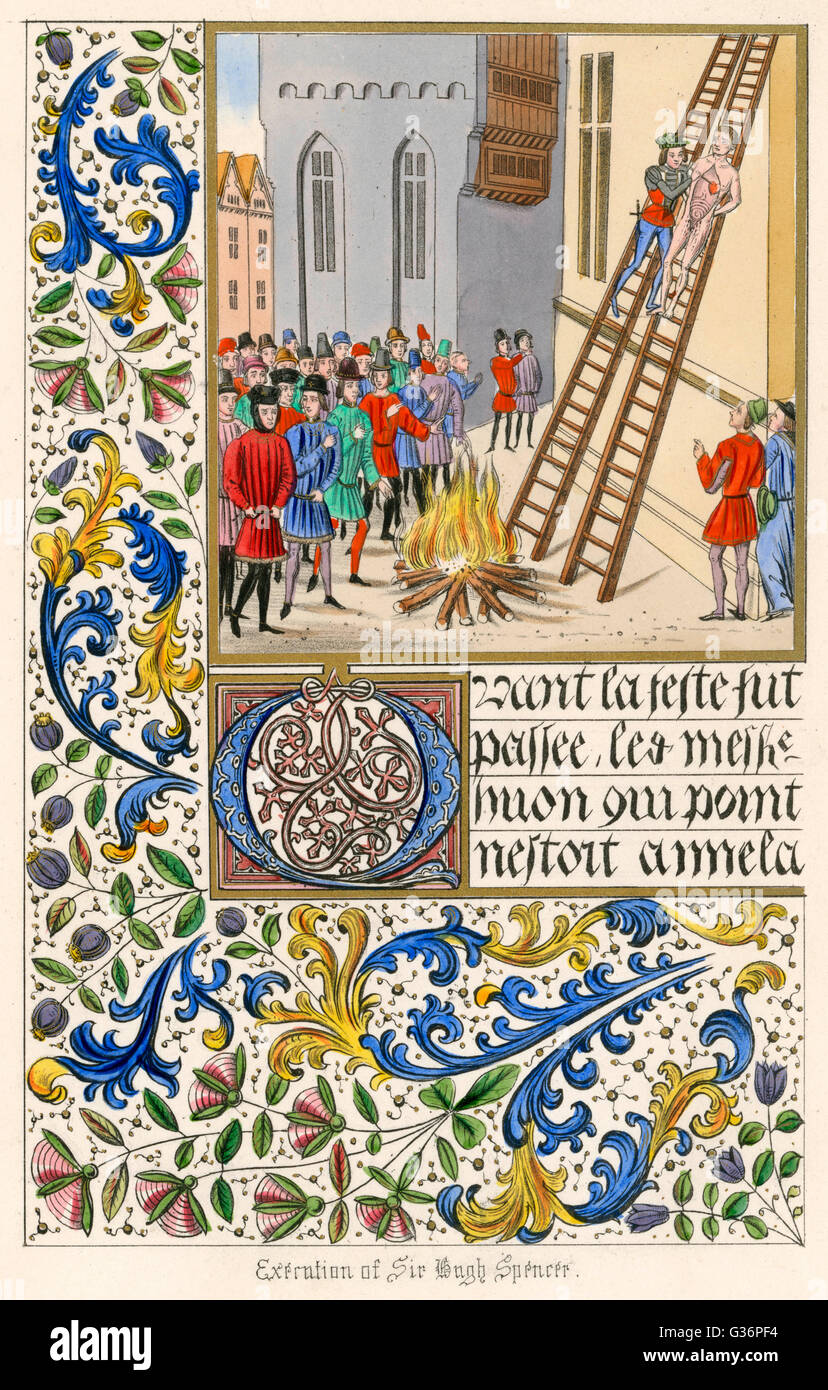 Quant la feste fut
passee, les mess^e
huon qui point
nestoit aime la
Execution of Sir Hugh Spencer.
alamy
Image ID: G36PF4
www.alamy.com